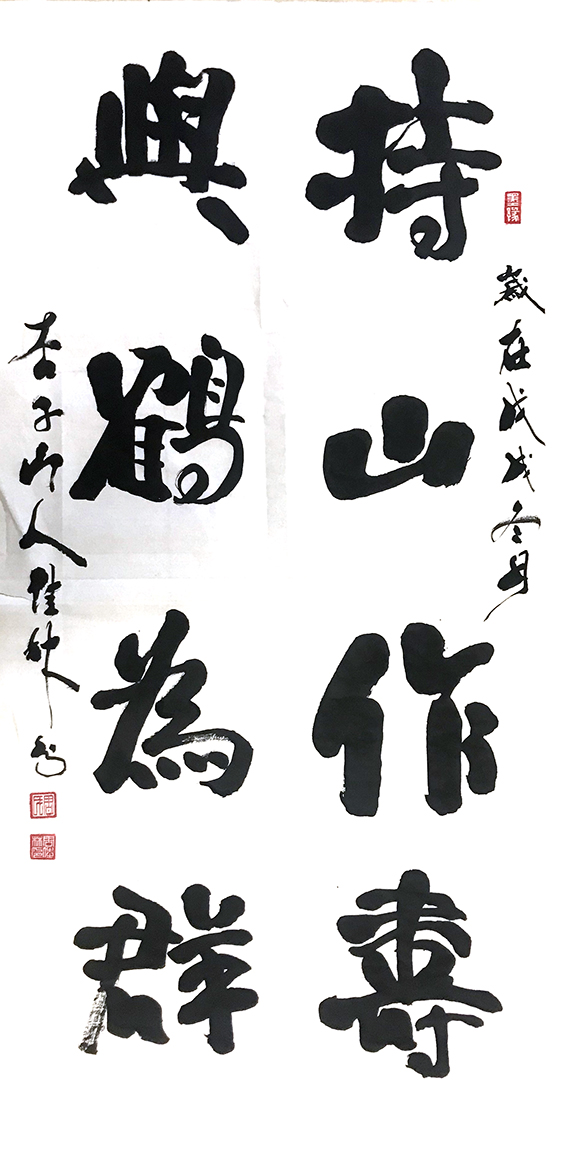 持山作壽
與鶴為群
歲在戊戌冬月
杏子山人佳林書